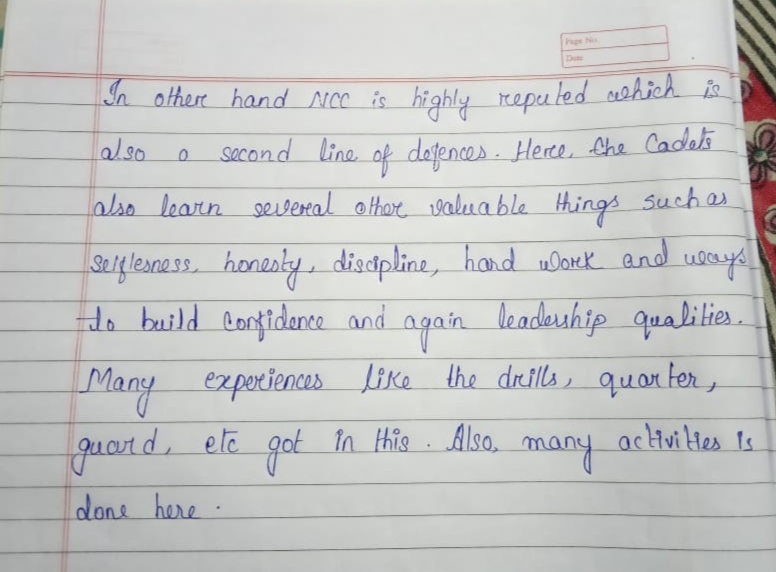 Page No.
Date
In other hand NCC is highly reputed which is
also a second line of defences. Here, the Cadets
also learn several other valuable things such as
selflesness, honesty, discipline, hard work and ways
to build confidence and again leadership qualities.
Many experiences like the drills, quarter,
guard, etc got in this. Also, many activities is
done here.